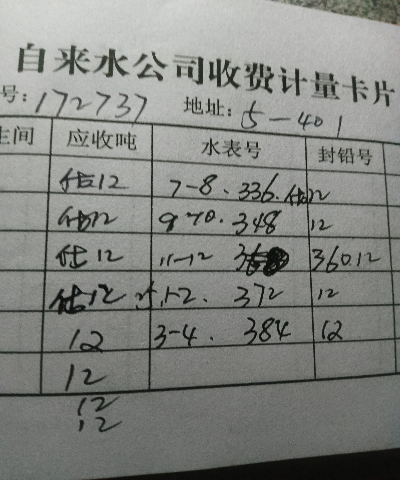 自来水公司收费计量卡片
号: 172737 地址: 5-401
间 应收吨 水表号 封铅号
估12 7-8. 336. 估12
估12 9-10. 348 12
估12 11-12 360 12
估12 1-2. 372 12
12 3-4. 384 12
12
12
12